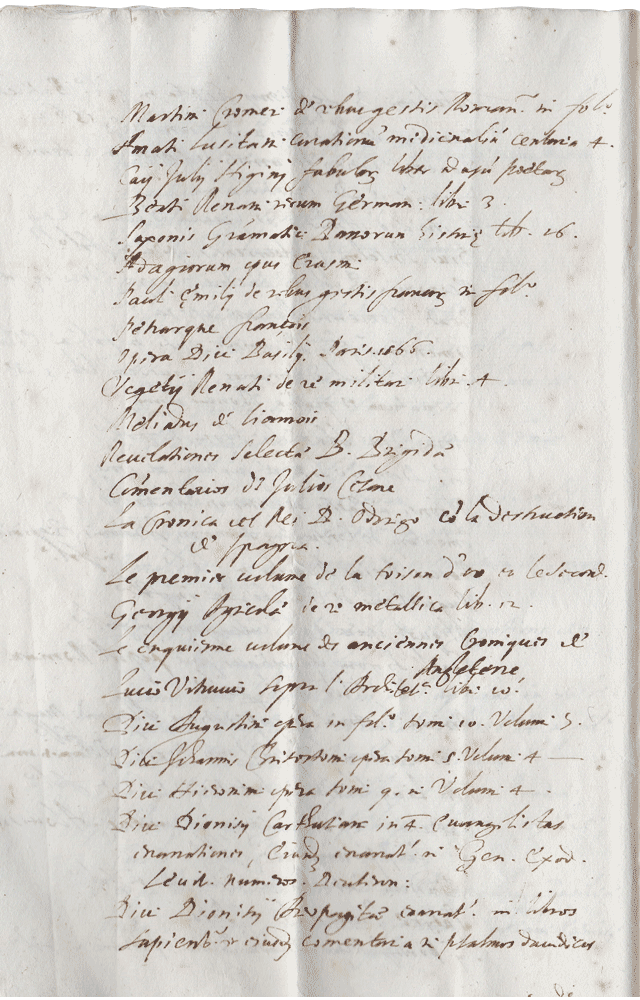 Martini Cromeri de rebus gestis Roman. in fol.º
Amati Lusitani curationū medicinaliū centuria 4.
Caij Julij Higinij fabulaꝝ liber ad poetaꝝ
Beati Renani rerum German. libri 3.
Saxonis Gramatici Danorum histrię lib. 16.
Adagiorum opus Erasmi
Pauli Emilij de rebus gestis francoꝝ in fol.º
Petrarque françois
opera Divi Basilij. Paris. 1566.
Vegetij Renati de re militari libri 4.
Meliadus de
Revelationes Selectæ B. Brigidæ
Comentarios de Julios Cesare
La Cronica del Rei D. Odrigo cō la destrution
de Spagna.
Le premier volume de la toison d'oro et le second.
Georgij Agricolæ de re metallica lib. 12.
Le enquiesme volume des anciennes Croniques de
Angleterre
Lucio Vitruvio sopra l'Architet.ª libri 10.
Divi Augustini opera in fol.º tomi 10. Volum. 5.
Divi Johannis Chrisostomi opera tomi 5. Volum. 4
Divi Hieronimi opera tomi 9. in Volum. 4.
Divi Dionisij Carthusiani in 4. Evangelistas
enarationes, eiusdē enarat. in Gen. Exod.
Levit. numeros. Deuteron:
Divi Dionisij Areopagitæ enarat. in libros
sapient. et eiusdē comentaria in psalmos davidicos